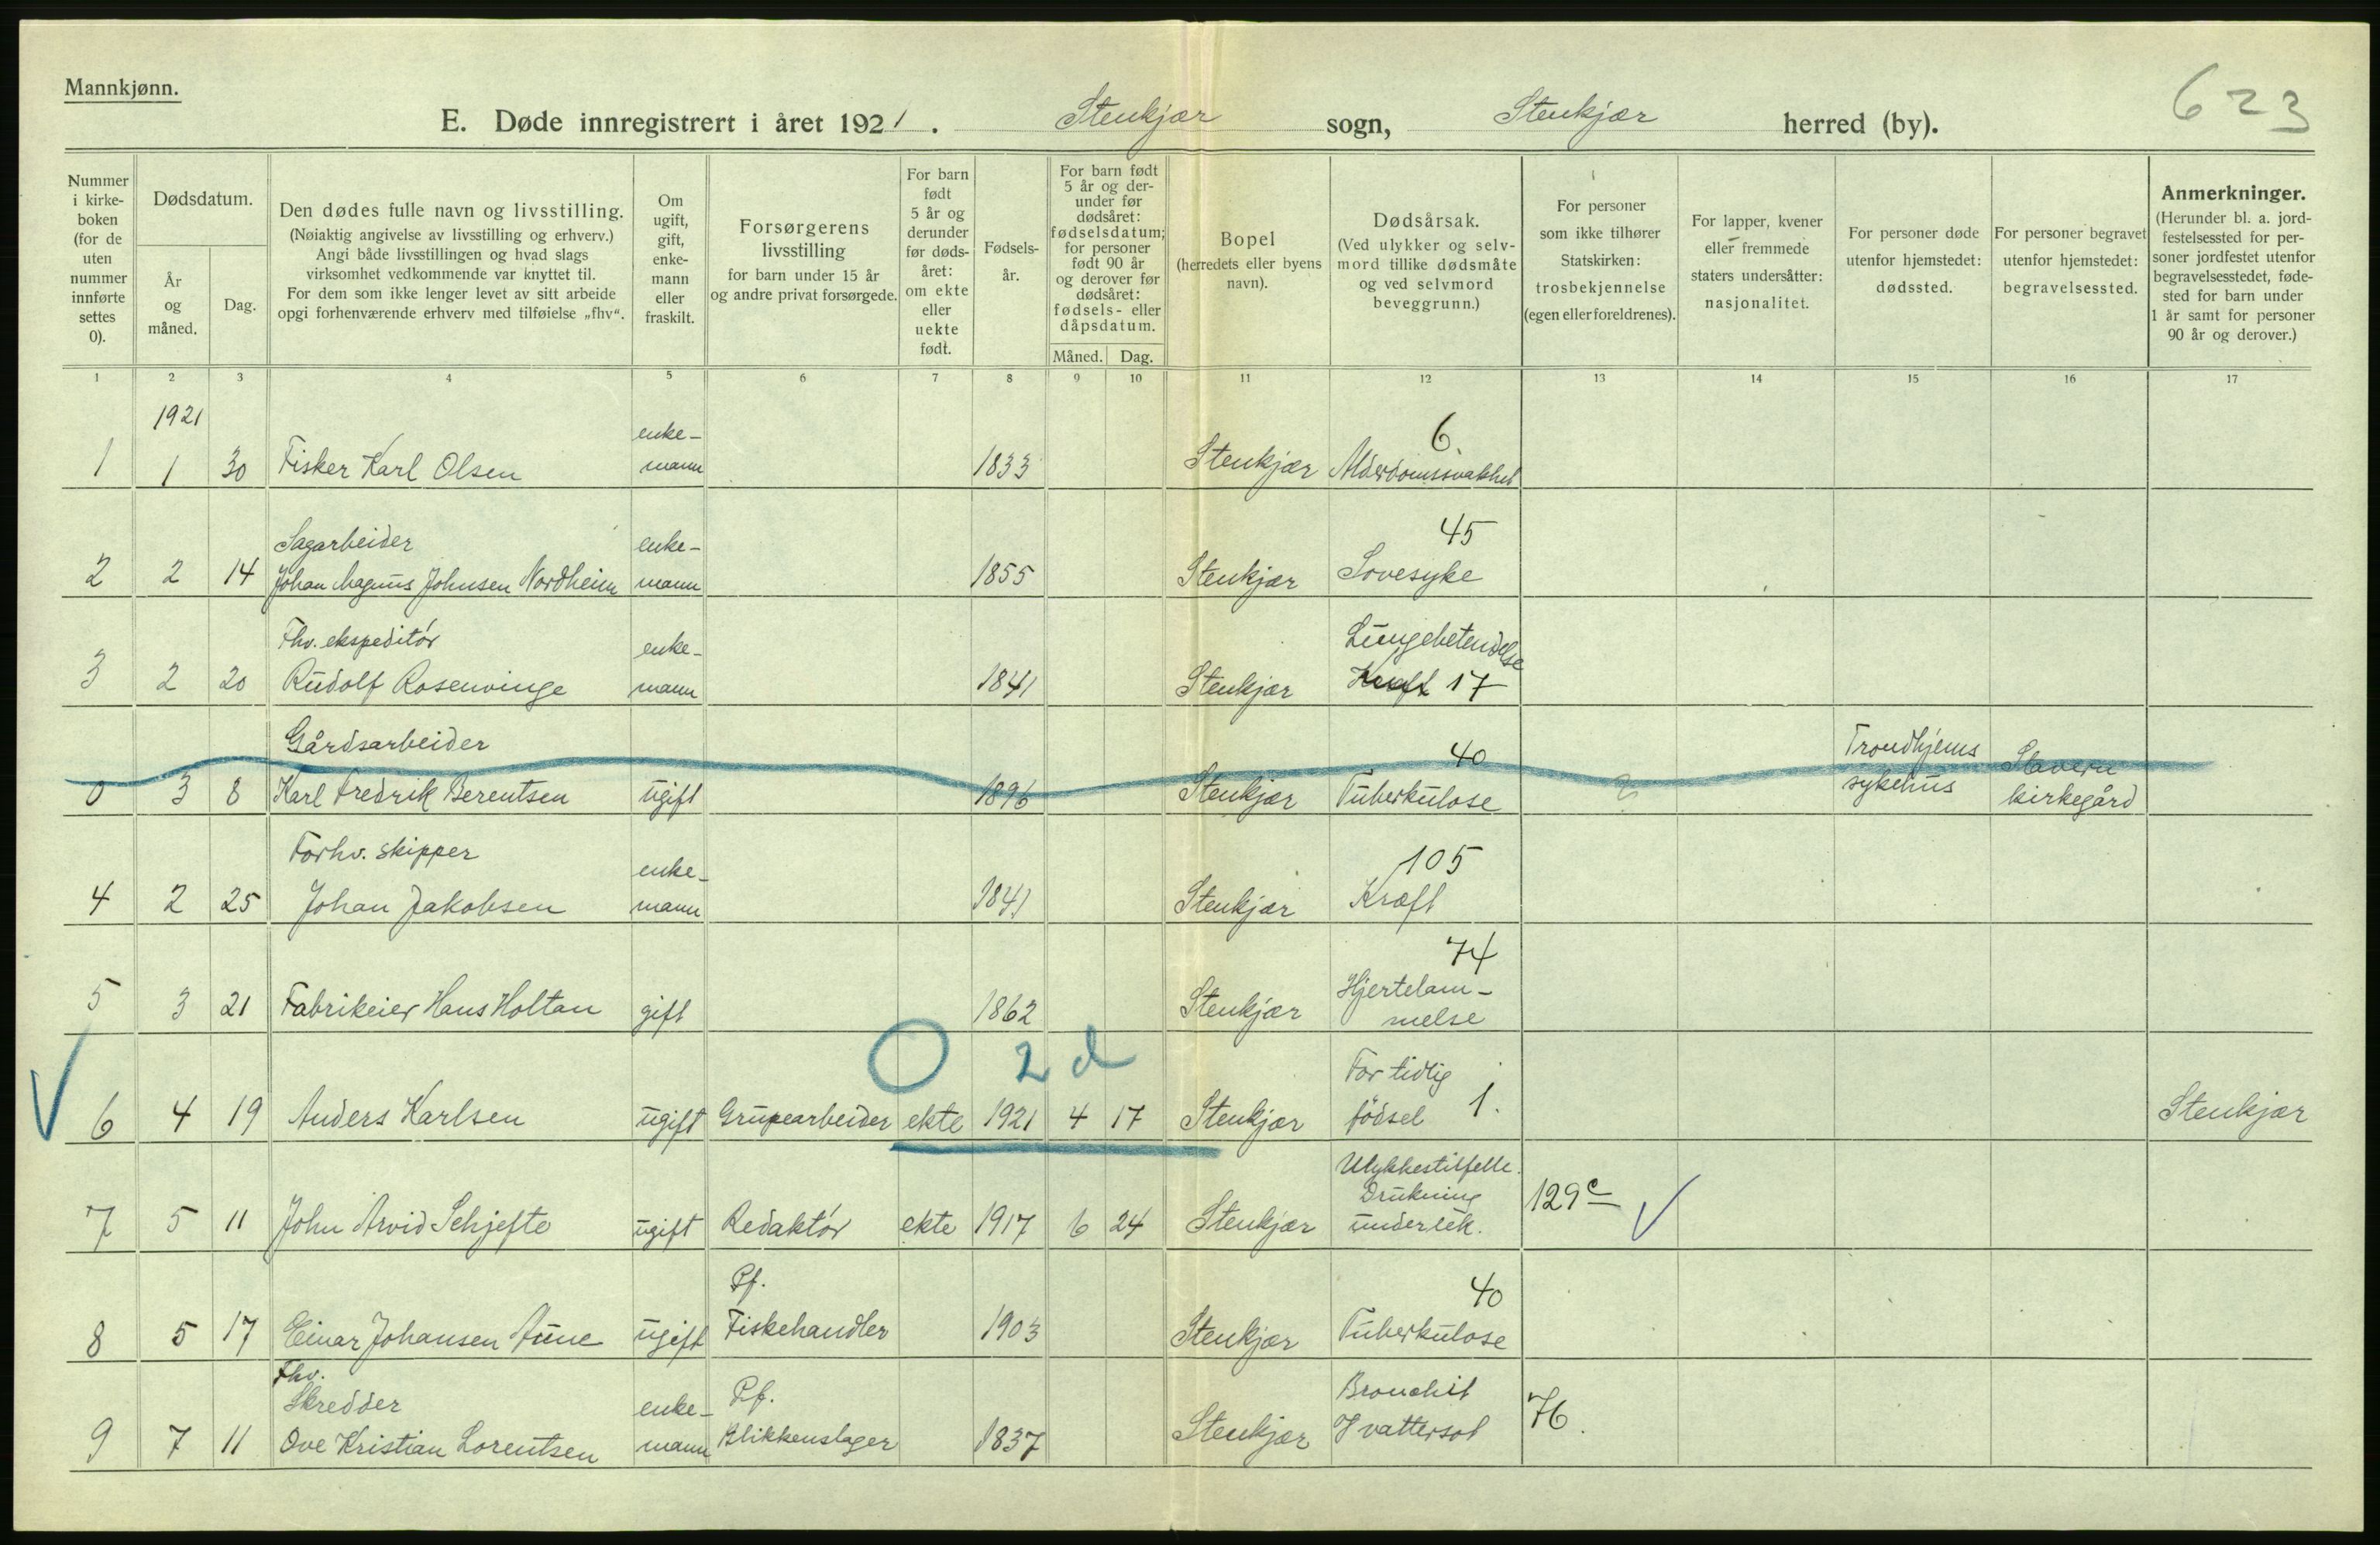 Mannkjønn.
623
E. Døde innregistrert i året 1921. Stenkjær sogn, Stenkjær herred (by).
Nummer i kirke- boken (for de uten nummer innførte settes 0).
Dødsdatum.
År og måned.
Dag.
Den dødes fulle navn og livsstilling.
(Nøiaktig angivelse av livsstilling og erhverv.)
Angi både livsstillingen og hvad slags
virksomhet vedkommende var knyttet til.
For dem som ikke lenger levet av sitt arbeide
opgi forhenværende erhverv med tilføielse „fhv“.
Om ugift, gift, enke- mann eller fraskilt.
Forsørgerens livsstilling
for barn under 15 år
og andre privat forsørgede.
For barn født 5 år og derunder før døds- året: om ekte eller uekte født.
Fødsels- år.
For barn født 5 år og der- under før dødsåret: fødselsdatum; for personer født 90 år og derover før dødsåret: fødsels- eller dåpsdatum.
Måned. Dag.
Bopel
(herredets eller byens navn).
Dødsårsak.
(Ved ulykker og selv-
mord tillike dødsmåte
og ved selvmord
beveggrunn.)
For personer som ikke tilhører Statskirken: trosbekjennelse (egen eller foreldrenes).
For lapper, kvener eller fremmede staters undersåtter: nasjonalitet.
For personer døde utenfor hjemstedet: dødssted.
For personer begravet utenfor hjemstedet: begravelsessted.
Anmerkninger.
(Herunder bl. a. jord-
festelsessted for per-
soner jordfestet utenfor
begravelsesstedet, føde-
sted for barn under
1 år samt for personer
90 år og derover.)
1 2 3 4 5 6 7 8 9 10 11 12 13 14 15 16 17
1921
enke- 6.
1 1 30 Fisker Karl Olsen mann 1833 Stenkjær Alderdomssvakhet
Sagarbeider enke- 45
2 2 14 Johan Magnus Johnsen Nordheim mann 1855 Stenkjær Sovesyke
Fhv. ekspeditör enke- Lungebetendelse
3 2 20 Rudolf Rosenvinge mann 1841 Stenkjær Kreft 17
Gårdsarbeider 40 Trondhjems Stavern
0 3 8 Karl Fredrik Berentsen ugift 1896 Stenkjær Tuberkulose sykehus kirkegård
Forhv. skipper enke- 105
4 2 25 Johan Jakobsen mann 1841 Stenkjær Kræft
74
Hjertelam-
5 3 21 Fabrikeier Hans Holtan gift 1862 Stenkjær melse
2 d
For tidlig
6 4 19 Anders Karlsen ugift Grupearbeider ekte 1921 4 17 Stenkjær födsel 1. Stenkjær
Ulykkestilfelle.
Drukning 129c
7 5 11 John Arvid Schjefte ugift Redaktör ekte 1917 6 24 Stenkjær under lek.
Pf. 40
8 5 17 Einar Johansen Aune ugift Fiskehandler 1903 Stenkjær Tuberkulose
Fhv.
Skredder enke- Pf. Bronchit 76.
9 7 11 Ove Kristian Lorentsen mann Blikkenslager 1837 Stenkjær Hvattersot